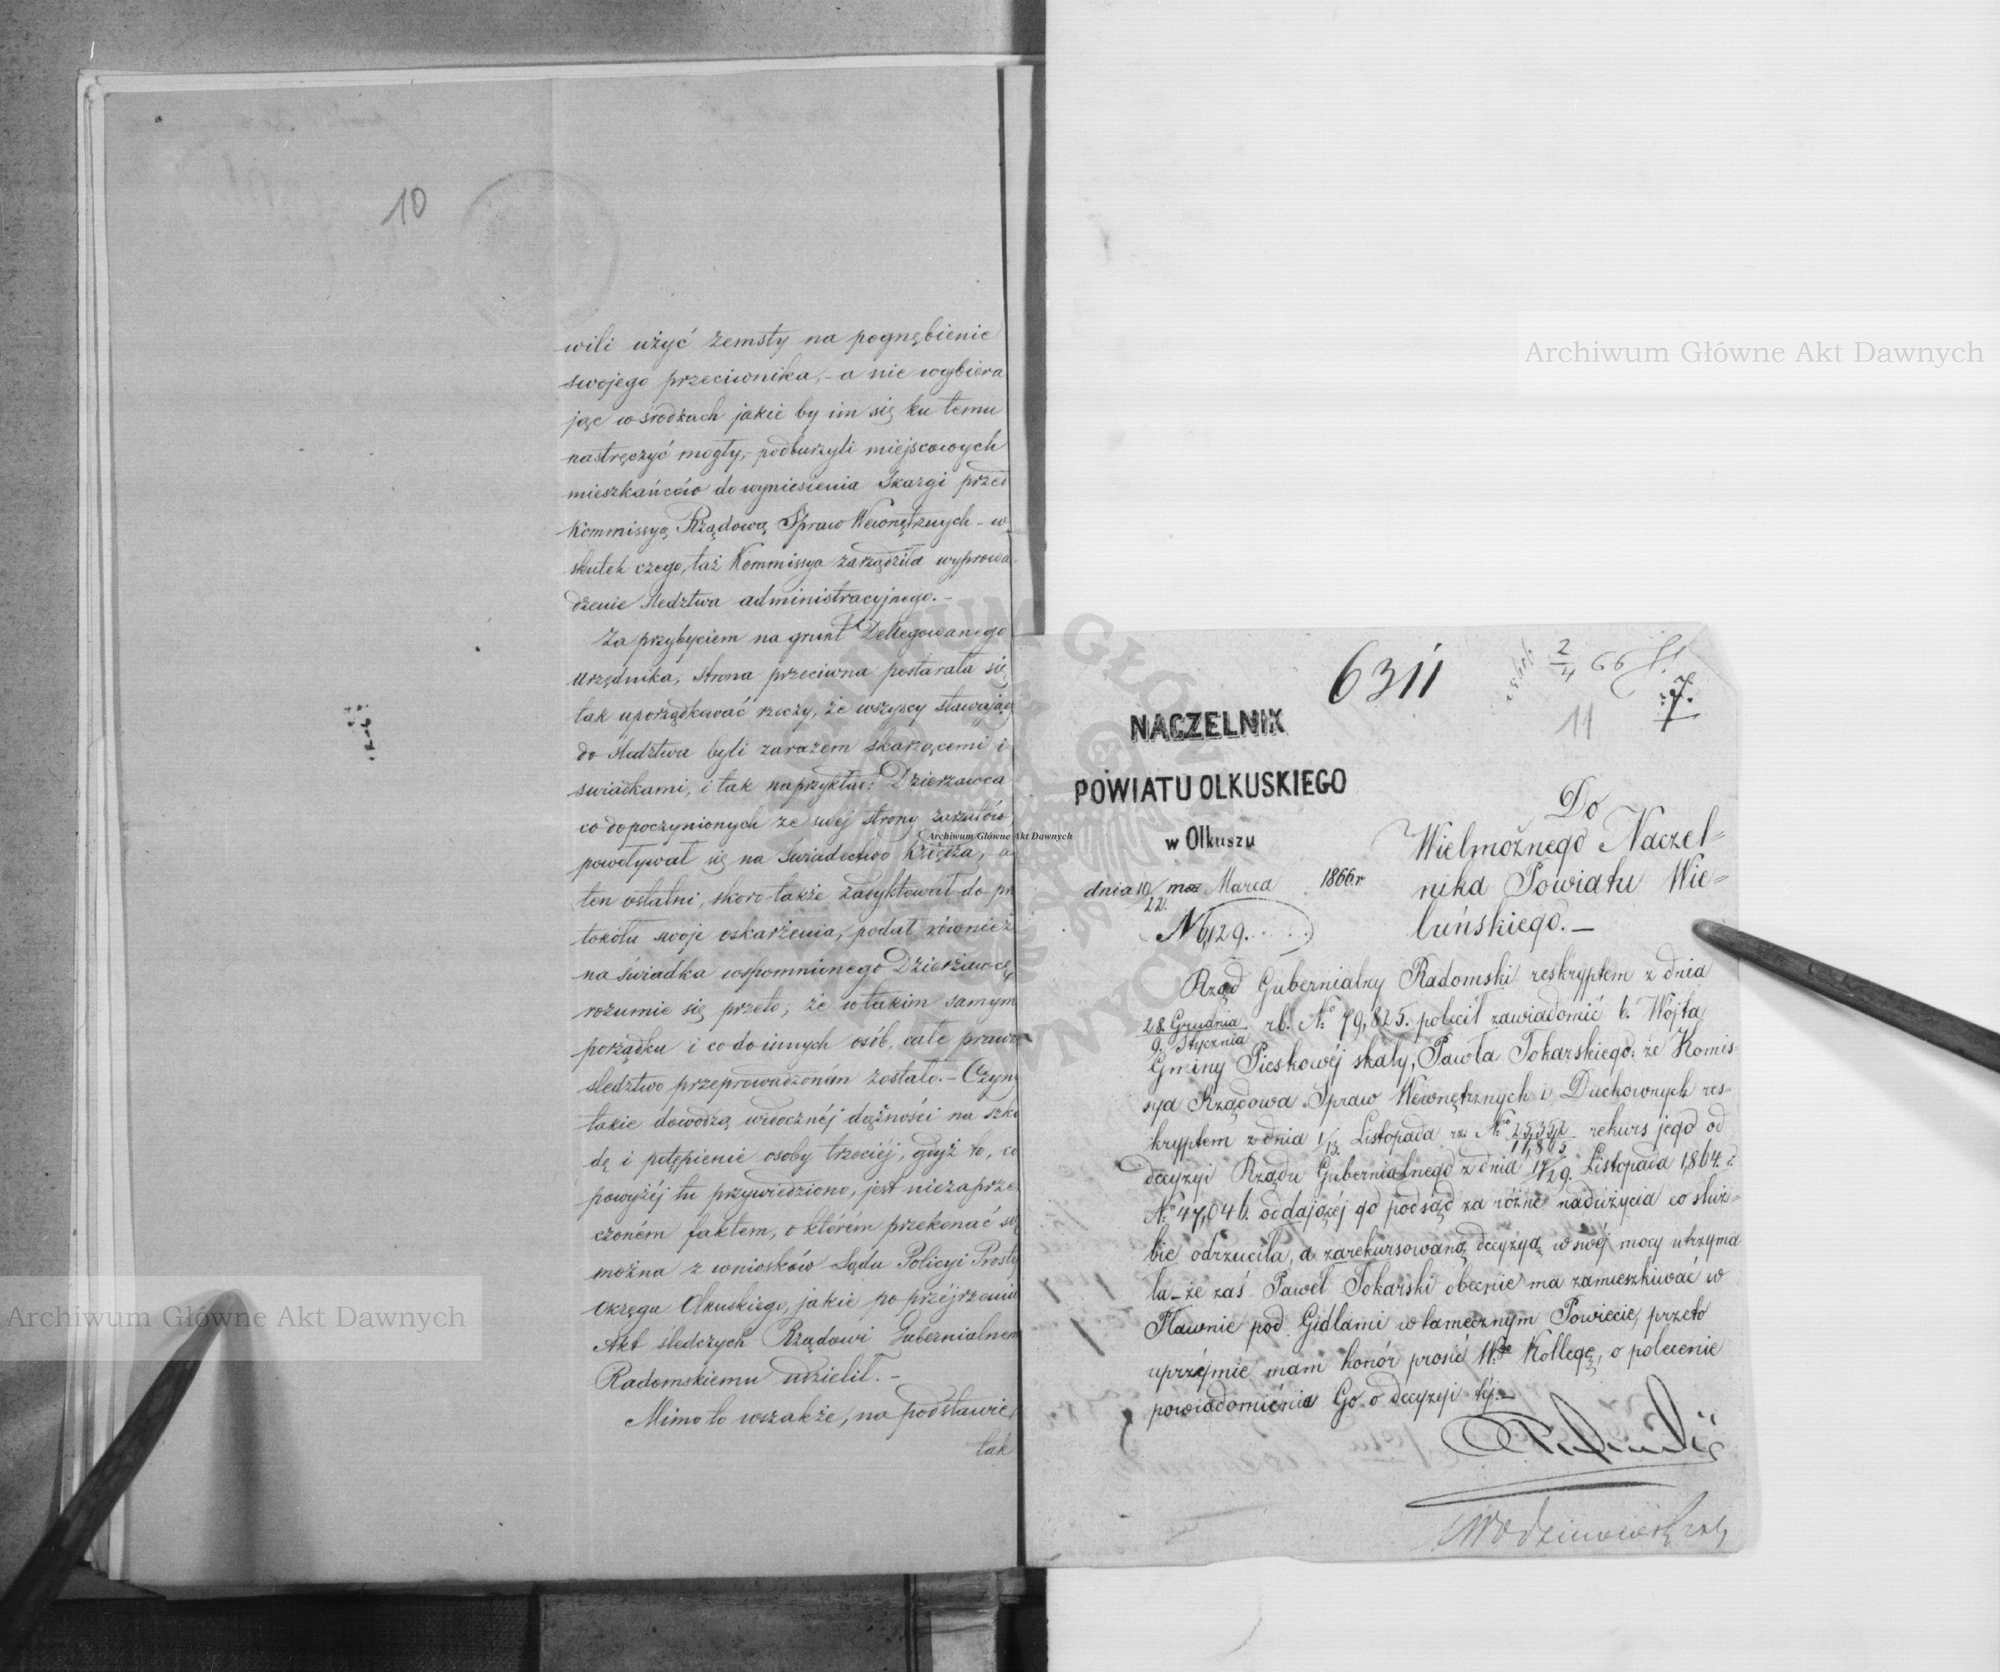 10
wili użyć zemsty na pognębienie
swojego przeciwnika, - a nie wybiera
jąc w środkach jakie by im się ku temu
nastręczyć mogły, - podburzyli miejscowych
mieszkańców do wyniesienia skargi przed
Kommissyą Rządową Spraw Wewnętrznych - w
skutek czego, taż Kommissya zarządziła wyprowa
dzenie śledztwa administracyjnego. -
Za przybyciem na grunt Delegowanego
Urzędnika, strona przeciwna postarała się
tak uporządkować rzeczy, że wszyscy stawają
do śledztwa byli zarazem skarzącemi i
swiadkami, i tak naprzykład: Dzierzawca
co do poczynionych ze swej strony zarzutów
powoływał się na świadectwo Księdza, a
ten ostatni, skoro także zadyktował do pr
tokółu swoje oskarżenia, podał również
na świadka wspomnionego Dzierżawcę
rozumie się przeto, że w takim samym
porządku i co do innych osób, całe prawie
śledztwo przeprowadzoném zostało. - Czyn
takie dowodzą widocznéj dążności na szko
dę i potępienie osoby trzeciéj, gdyż to, co
powyżéj tu przywiedziono, jest niezaprze
czoném faktem, o którém przekonać się
można z wniosków Sądu Policyi Prostej
Okręgu Olkuskiego, jakie po przejrzeniu
Akt śledczych Rządowi Gubernialnem
Radomskiemu udzielił. -
Mimo to wszakże, na podstawie
tak
6311
2/4 66
7.
11
NACZELNIK
POWIATU OLKUSKIEGO
w Olkuszu
dnia 10/22 Marca 1866 r
N 6,129.
Do
Wielmożnego Naczel-
nika Powiatu Wie-
luńskiego. -
Rząd Gubernialny Radomski reskryptem z dnia
28 Grudnia / 9. Stycznia rb. No 79,825. polecił zawiadomić b. Wójta
Gminy Pieskowéj skały, Pawła Tokarskiego: że Komis
sya Rządowa Spraw Wewnętrznych i Duchownych res-
kryptem z dnia 1/13 Listopada rz. No 25352/11,805 rekurs jego od
decyzyi Rządu Gubernialnego z dnia 17/29. Listopada 1,864. r.
No 47,046. oddającéj go pod sąd za różne nadużycia co służ-
bie odrzuciła, a zarekursowaną decyzyą w swéj mocy utrzyma
ła - że zaś Paweł Tokarski obecnie ma zamieszkiwać w
Pławnie pod Gidlami w tamecznym Powiecie, przeto
uprzéjmie mam honór prosić W. Kollegę, o polecenie
powiadomiénia Go o decyzyi téj. -
Archiwum Główne Akt Dawnych
Archiwum Główne Akt Dawnych
Archiwum Główne Akt Dawnych